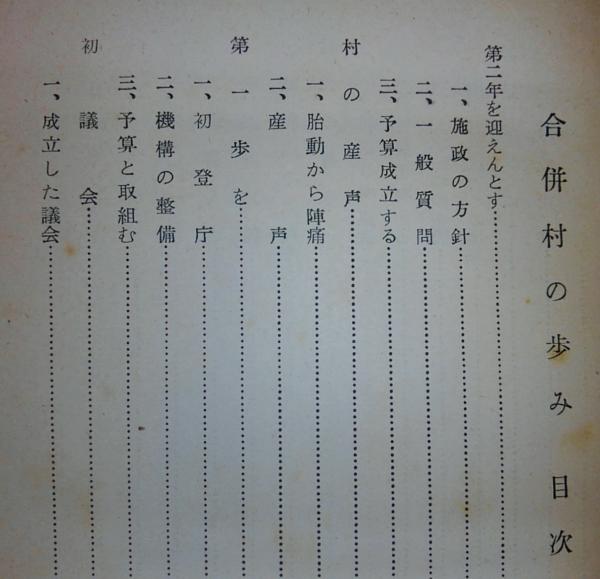 合併村の歩み 目次
第二年を迎えんとす
一、施政の方針
二、一般質問
三、予算成立する
村の産声
一、胎動から陣痛
二、産声
第一歩を
一、初登庁
二、機構の整備
三、予算と取組む
初議会
一、成立した議会